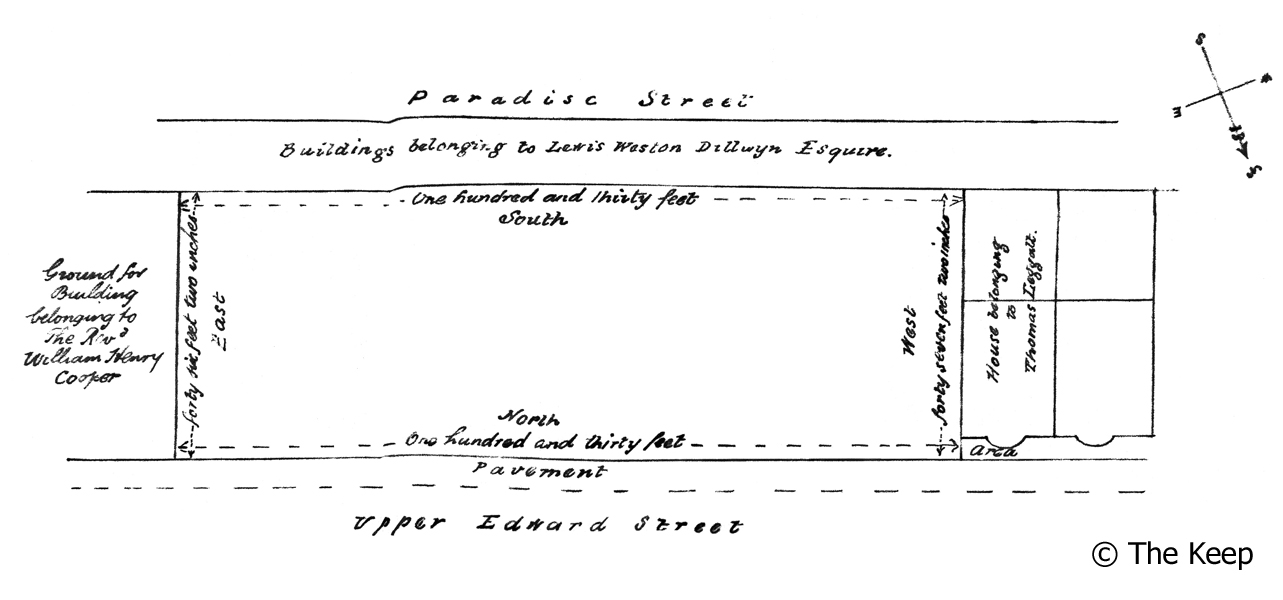 Paradise Street
Buildings belonging to Lewis Weston Dillwyn Esquire.
One hundred and thirty feet
South
Ground for
Building
belonging to
The Revd
William Henry
Cooper
forty six feet two inches
East
West
forty seven feet two inches
House belonging
to
Thomas Leggatt.
North
One hundred and thirty feet
Area
Pavement
Upper Edward Street
S
E
© The Keep